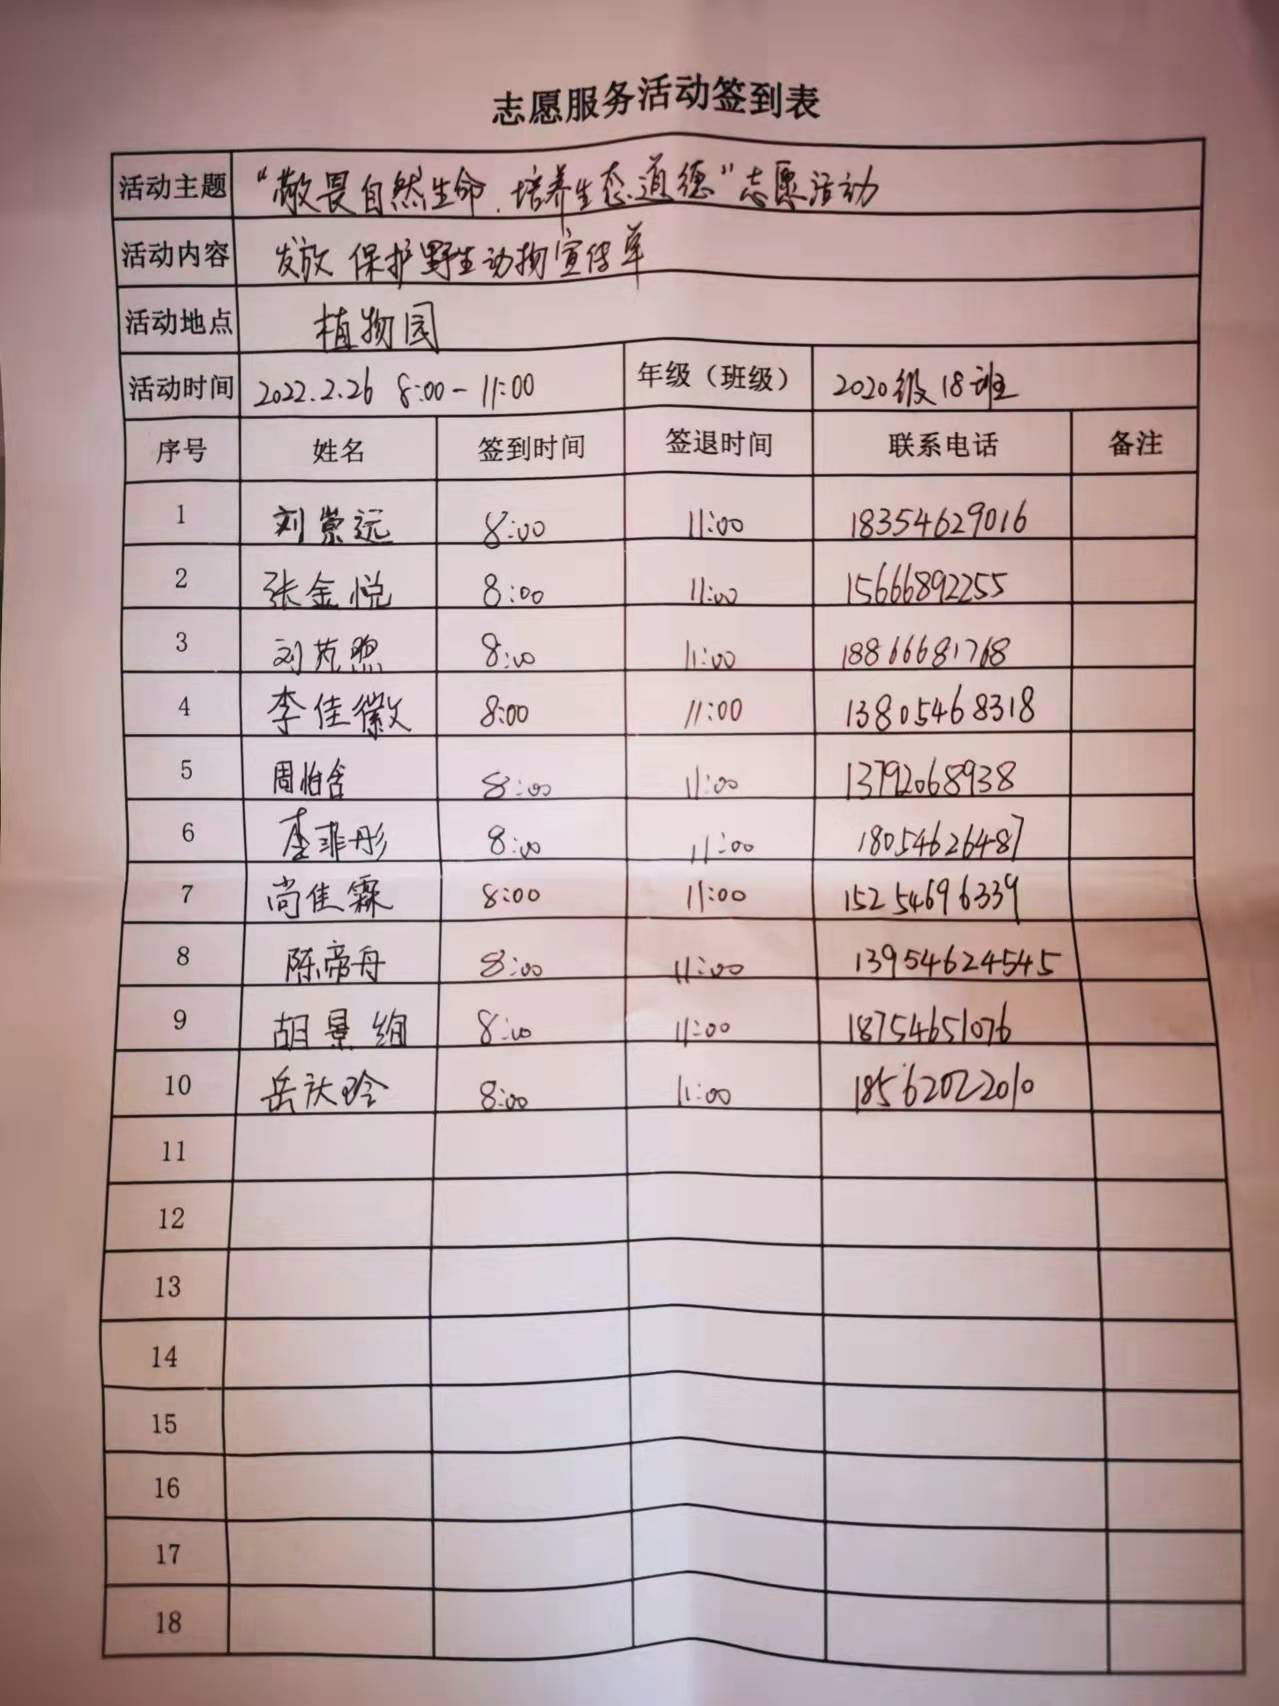 志愿服务活动签到表
活动主题 “敬畏自然生命，培养生态道德”志愿活动
活动内容 发放保护野生动物宣传单
活动地点 植物园
活动时间 2022.2.26 8:00-11:00 年级（班级） 2020级18班
序号 姓名 签到时间 签退时间 联系电话 备注
1 刘崇远 8:00 11:00 18354629016
2 张金悦 8:00 11:00 15666892255
3 刘苑煦 8:00 11:00 18866681768
4 李佳徽 8:00 11:00 13805468318
5 周怡含 8:00 11:00 13792068938
6 李菲彤 8:00 11:00 18054626487
7 尚佳霖 8:00 11:00 15254696339
8 陈帝舟 8:00 11:00 13954624545
9 胡景绚 8:00 11:00 18754651076
10 岳庆玲 8:00 11:00 18562022010
11
12
13
14
15
16
17
18